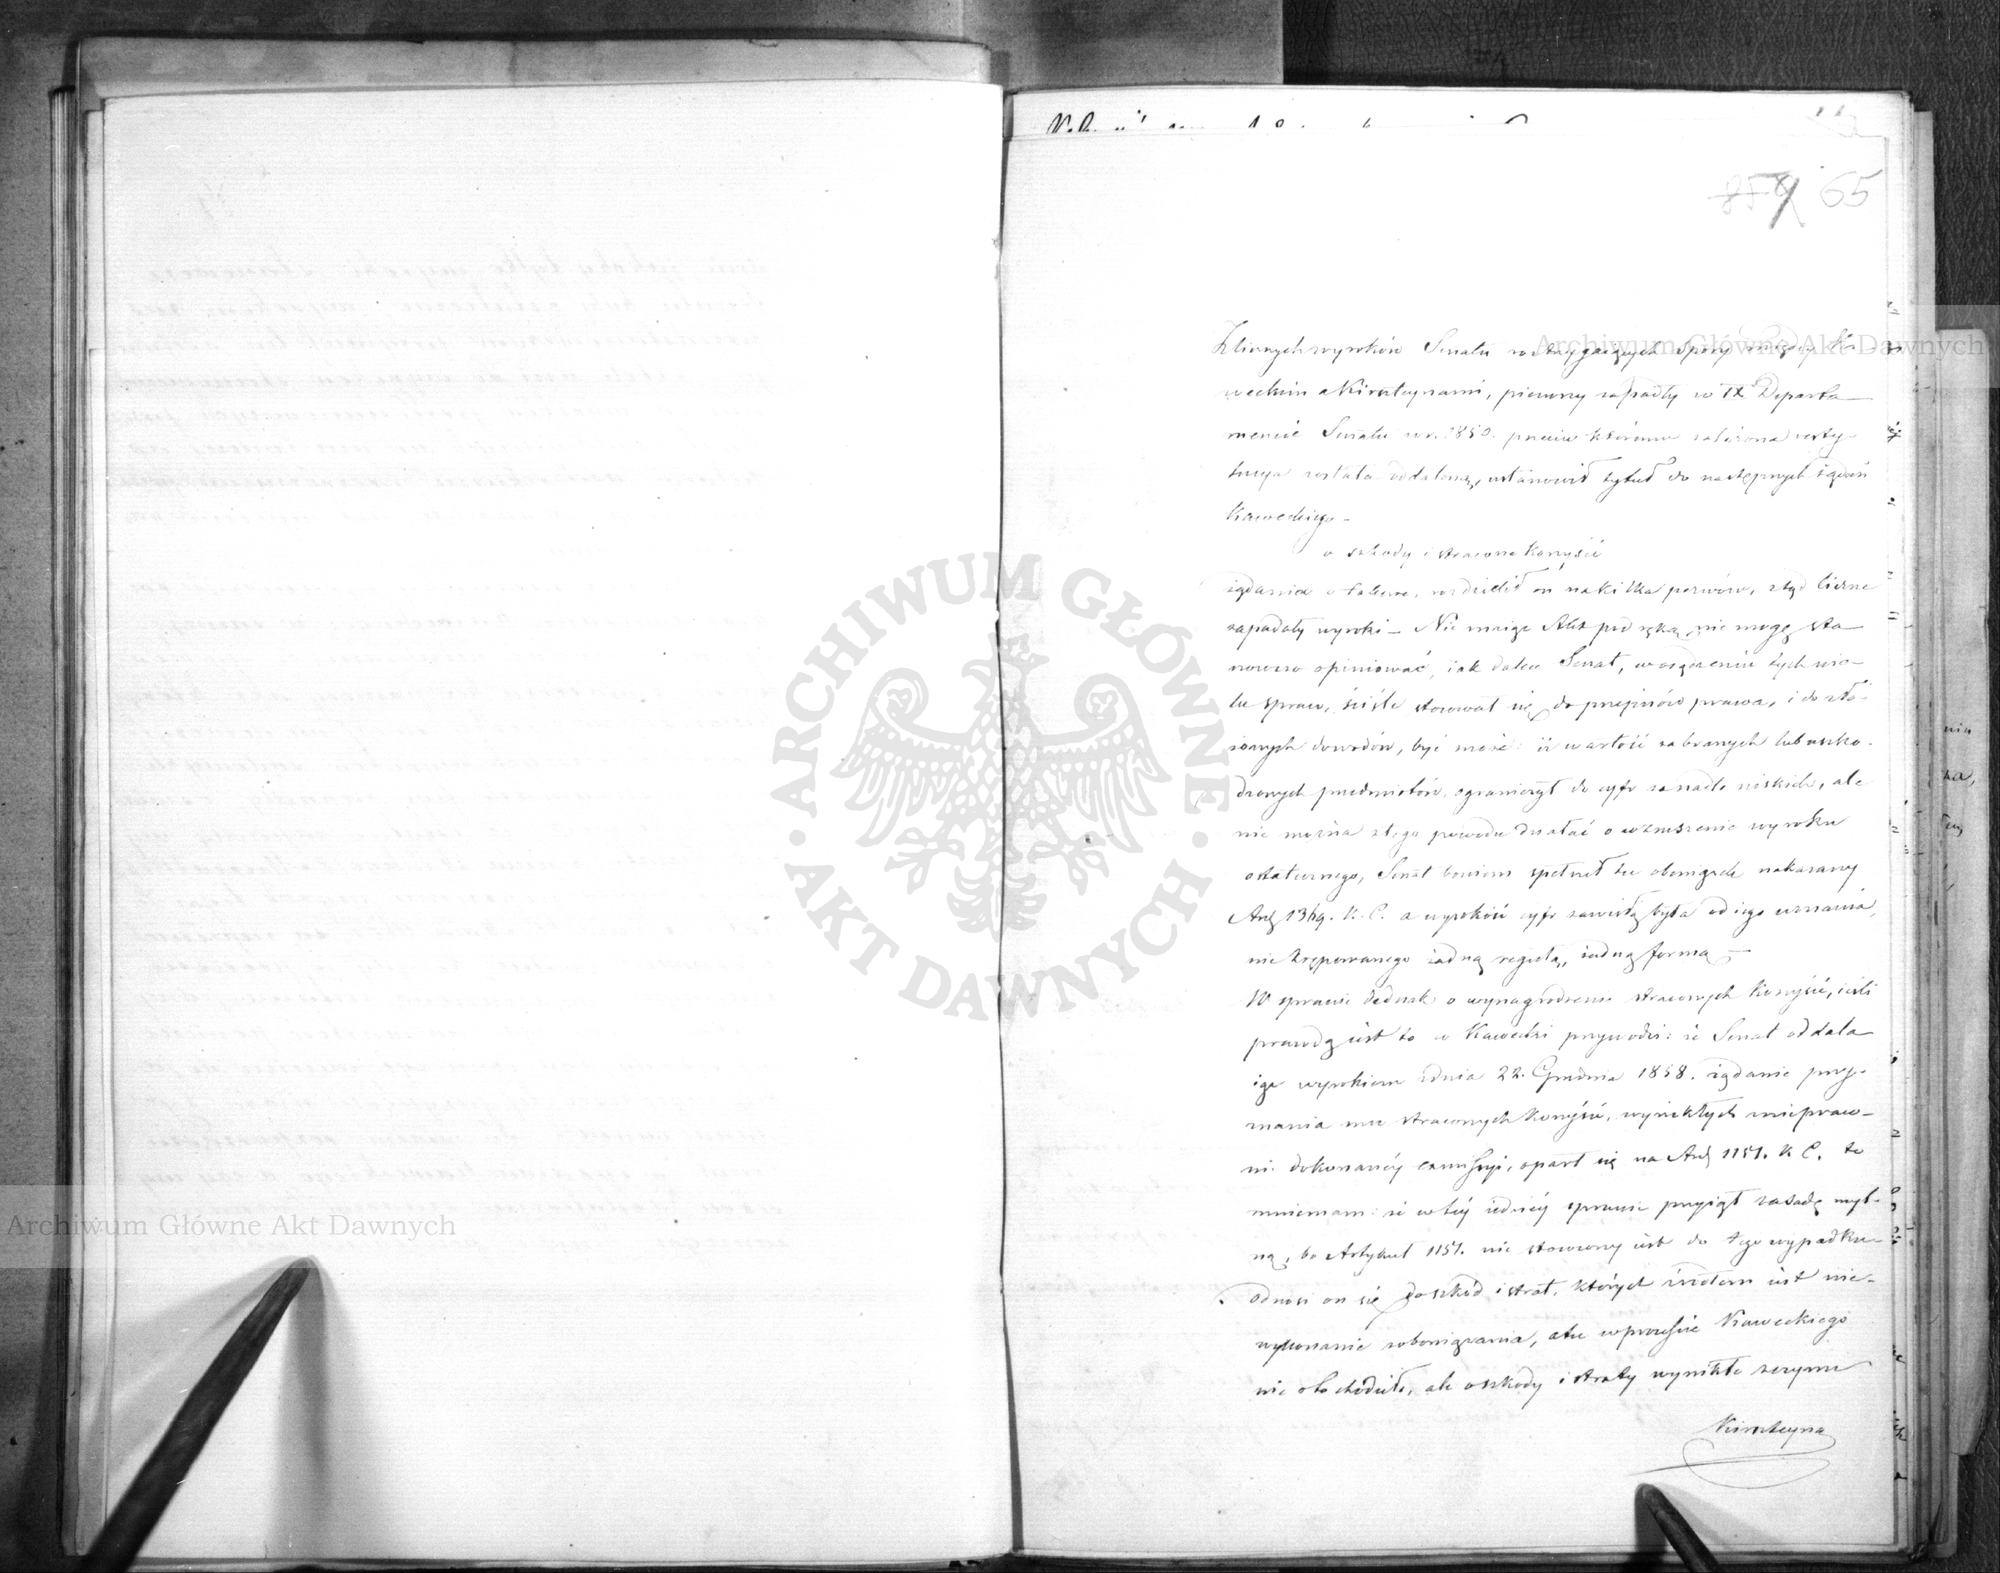 859 65
Z licznych wyroków Senatu rozstrzygających spory między Ka-
weckim a Kirsztejnami, pierwszy zapadły w IX Departa-
mencie Senatu w r. 1850. przeciw któremu założona resty-
tucya została oddaloną, ustanowił tytuł do następnych żądań
Kaweckiego –
o szkody i stracone korzyści
żądania o takowe, rozdzielił on na kilka pozwów, ztąd liczne
zapadały wyroki – Nie mając Akt pod ręką nie mogę sta-
nowczo opiniować, jak dalece Senat, w osądzeniu tych wie-
lu spraw, ściśle stosował się do przepisów prawa, i do zło-
żonych dowodów, być może: iż wartość zabranych lub uszko-
dzonych przedmiotów, ograniczył do cyfr zanadto niskich, ale
nie można z tego powodu działać o wzruszenie wyroku
ostatecznego, Senat bowiem spełnił tu obowiązek nakazany
Art 1369. K. C. a wysokość cyfr zawisłą była od jego uznania,
nie krępowanego żadną regułą, żadną formą –
W sprawie jednak o wynagrodzenie straconych korzyści, jeśli
prawdą jest to co Kawecki przywodzi: że Senat oddala-
jąc wyrokiem z dnia 22. Grudnia 1858. żądanie przy-
znania mu straconych korzyści, wynikłych z niepraw-
nie dokonanéj exmissyi, oparł się na Art 1151. K C. to
mniemam: że w téj jednéj sprawie przyjął zasadę myl-
ną, bo Artykuł 1151. nie stosowny jest do tego wypadku
odnosi on się do szkód i strat, których źródłem jest nie-
wykonanie zobowiązania, a tu w processie Kaweckiego
nie o to chodziło, ale o szkody i straty wynikłe z czynu
Kirsztejna
Archiwum Główne Akt Dawnych
Archiwum Główne Akt Dawnych
ARCHIWUM GŁÓWNE AKT DAWNYCH